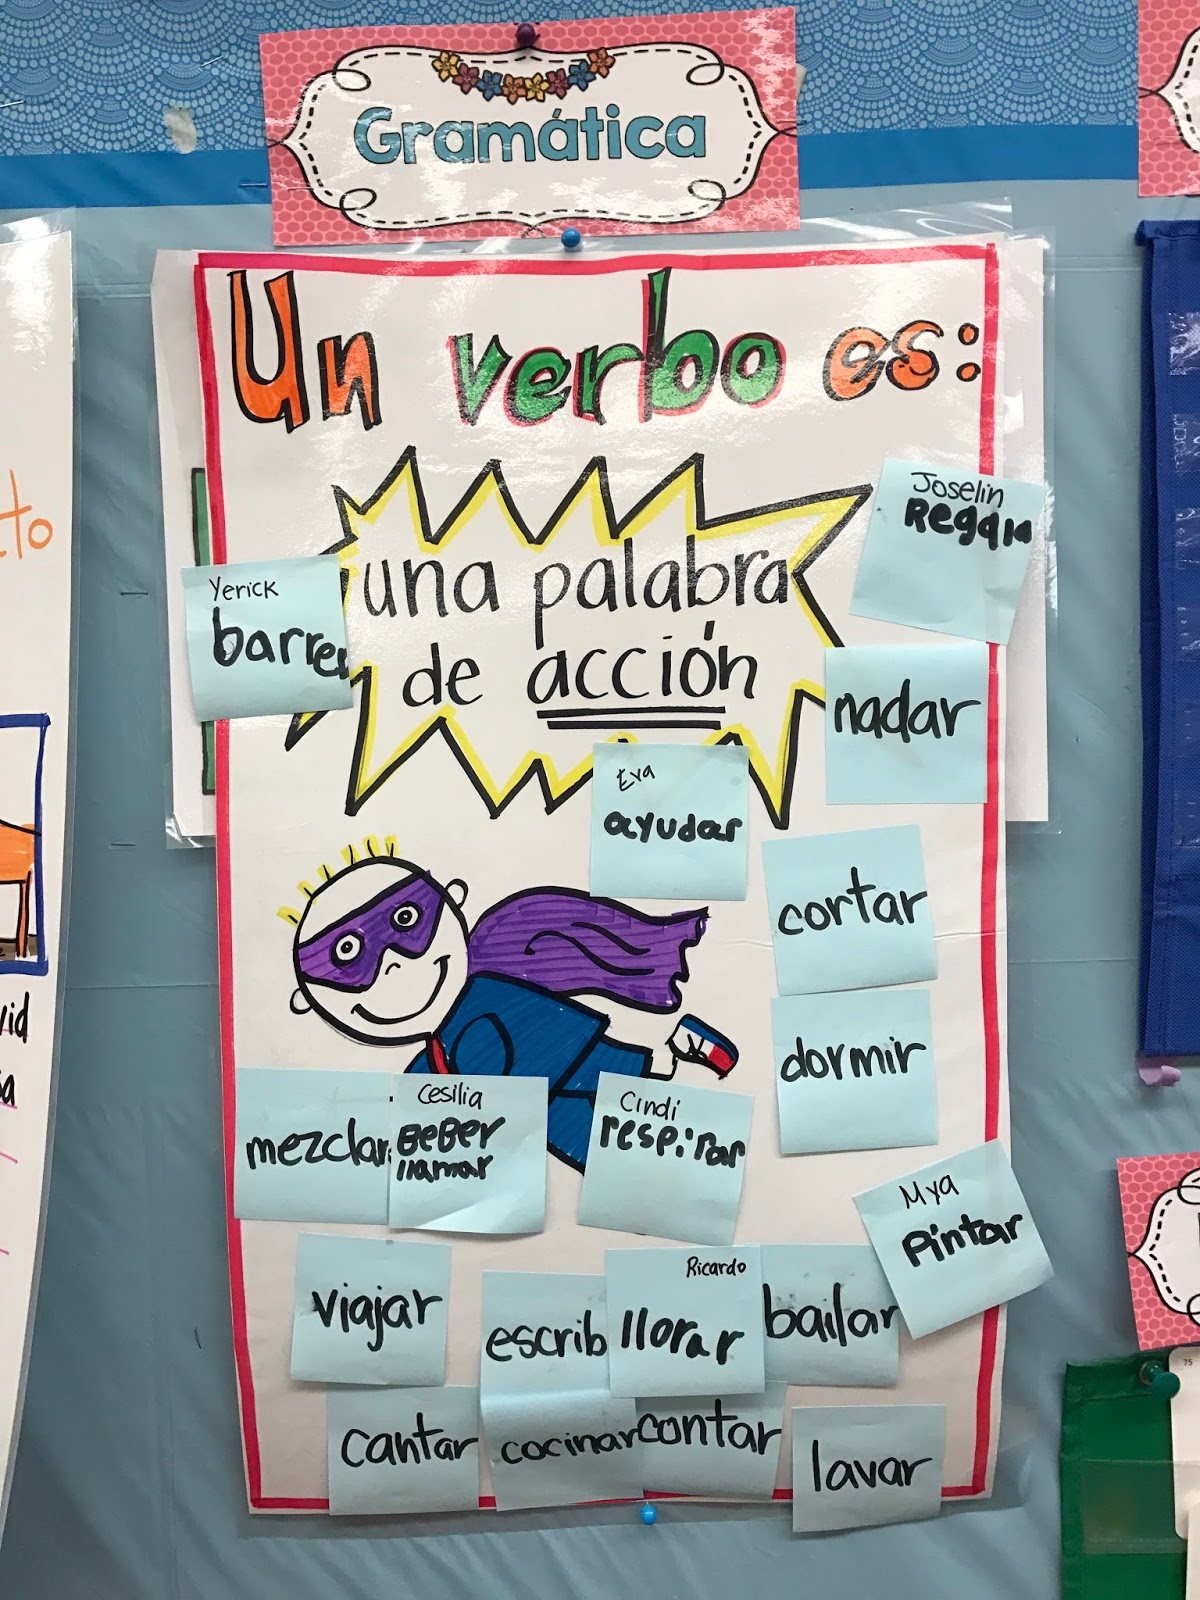 Gramática
Un verbo es:
una palabra
de acción
Joselin
Yerick
barrer
nadar
Eva
ayudar
cortar
dormir
mezclar
Cesilia
BeBer
llamar
Cindi
respirar
Mya
pintar
viajar
escrib
Ricardo
llorar
bailar
cantar
cocinar
contar
lavar